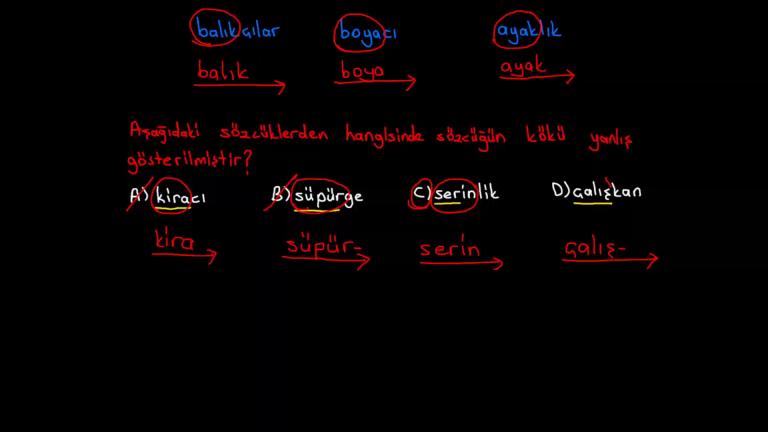 balıkçılar boyacı ayaklık
balık boya ayak
Aşağıdaki sözcüklerden hangisinde sözcüğün kökü yanlış
gösterilmiştir?
A) kiracı B) süpürge C) serinlik D) çalışkan
kira süpür- serin çalış-